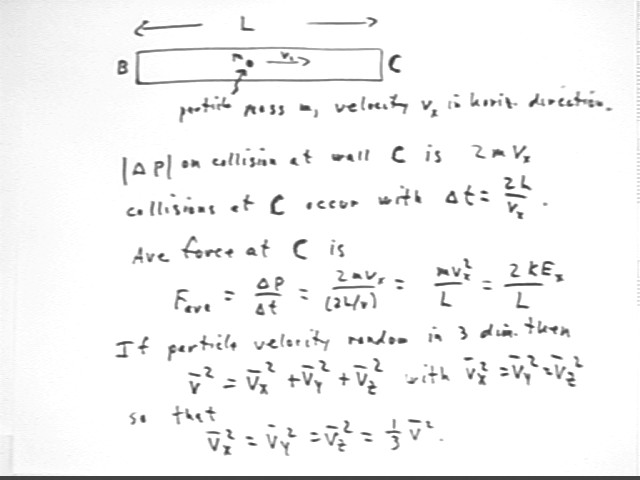 L
B m v_x C
particle mass m, velocity v_x in horiz. direction.
|Δp| on collision at wall C is 2mv_x
collisions at C occur with Δt = 2L/v_x.
Ave force at C is
F_ave = Δp/Δt = 2mv_x/(2L/v) = mv_x²/L = 2KE_x/L
If particle velocity random in 3 dim. then
v̄² = v̄_x² + v̄_y² + v̄_z² with v̄_x² = v̄_y² = v̄_z²
so that
v̄_x² = v̄_y² = v̄_z² = 1/3 v̄².